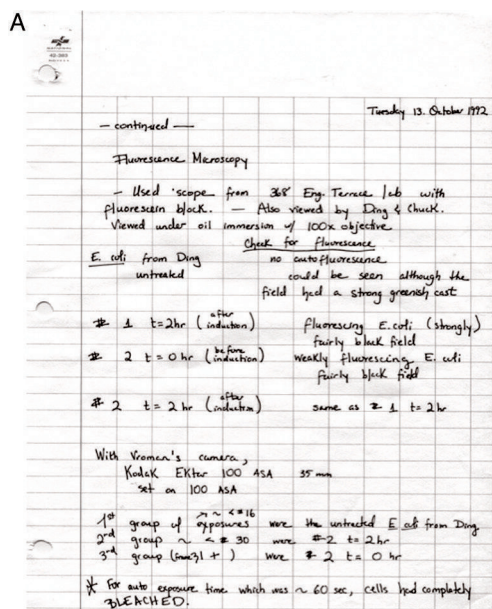 A
NATIONAL
42-389
Tuesday 13. October 1992
— continued —
Fluorescence Microscopy
— Used 'scope from 368 Eng. Terrace lab with
fluorescein block. — Also viewed by Ding & Chuck.
Viewed under oil immersion w/ 100x objective
Check for fluorescence
E. coli from Ding no autofluorescence
untreated could be seen although the
field had a strong greenish cast
# 1 t=2hr (after induction) fluorescing E.coli (strongly)
fairly black field
# 2 t=0 hr (before induction) weakly fluorescing E. coli
fairly black field
# 2 t= 2 hr (after induction) same as # 1 t= 2hr
With Vroman's camera,
Kodak EKtar 100 ASA 35 mm
set on 100 ASA
~ < #16
1st group of exposures were the untreated E coli from Ding
2nd group ~ < # 30 were #2 t= 2hr
3rd group (from 31 +) were # 2 t= 0 hr
* For auto exposure time which was ~ 60 sec, cells had completely
BLEACHED.